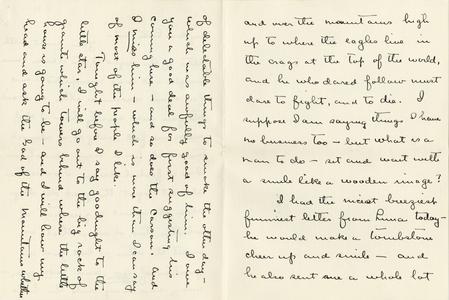 and over the mountains high
up to where the eagles live in
the crags at the top of the world,
and he who dared follow must
dare to fight, and to die. I
suppose I am saying things I have
no business too - but what is a
man to do - set and wait with
a smile like a wooden image?
I had the nicest breeziest
funniest letter from today -
he would make a tombstone
cheer up and smile - and
he also sent me a whole lot
of delectable things to smoke the other day -
which was awfully good of him. I owe
you a good deal for first suggesting his
coming here - and so does the Carson. And
I miss him - which is more than I can say
of most of the people I like.
Tonight before I say goodnight to the
little star, I will go out to the big rock of
granite which towers behind where the little
house is going to be - and I will bow my
head and ask the God of the Mountains whether